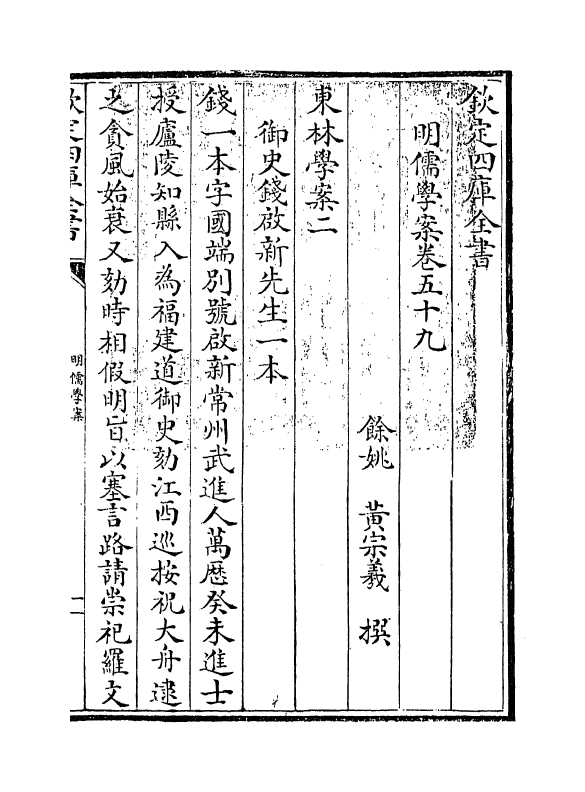 欽定四庫全書
明儒學案卷五十九
餘姚　黃宗羲　撰
東林學案二
御史錢啟新先生一本
錢一本字國端別號啟新常州武進人萬厯癸未進士
授廬陵知縣入為福建道御史劾江西巡按祝大舟逮
之貪風始衰又劾時相假明旨以塞言路請崇祀羅文
明儒學案